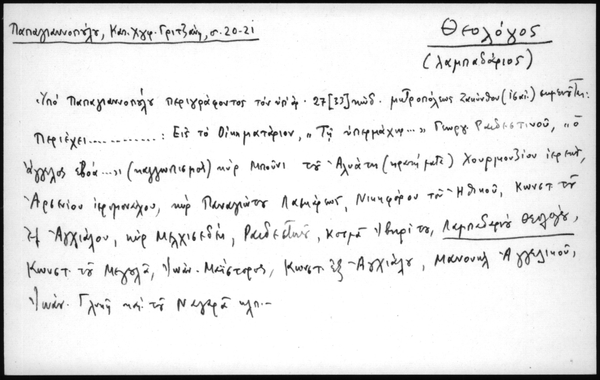 Παπαγιαννοπούλου, Κατ. Χγφ. Γριτζάνη, σ. 20-21
Θεολόγος
(λαμπαδάριος)
Ὑπὸ Παπαγιαννοπούλου περιγράφοντος τὸν ὑπ' ἀρ. 27[33] κώδ. μητροπόλεως Ζακύνθου σημειοῦται:
Περιέχει ...........: Εἰς τὸ Οἰκηματάριον, "Τῇ ὑπερμάχῳ..." Γεωργ. Ραιδεστινοῦ, "ὁ
ἄγγελος ἐβόα..." (καλλωπισμὸς) κὺρ Μπούνι τοῦ Ἀλυάτη (κρατήματα) Χουρμουζίου ἱερέως,
Ἀρσενίου ἱερομονάχου, κὺρ Παναγιώτου Λασκάρεως, Νικηφόρου τοῦ Ἠθικοῦ, Κωνστ. τοῦ
ἐξ Ἀγχιάλου, κὺρ Μελχισεδέκ, Ραιδεστινοῦ, Κοσμᾶ Ἰβηρίτου, Λαμπαδαρίου Θεολόγου,
Κωνστ. τοῦ Μαγουλᾶ, Ἰωάν. Μαΐστορος, Κωνστ. ἐξ Ἀγχιάλου, Μανουὴλ Ἀγγελικοῦ,
Ἰωάν. Γλυκῆ καὶ τοῦ Ναγερᾶ κλπ.—